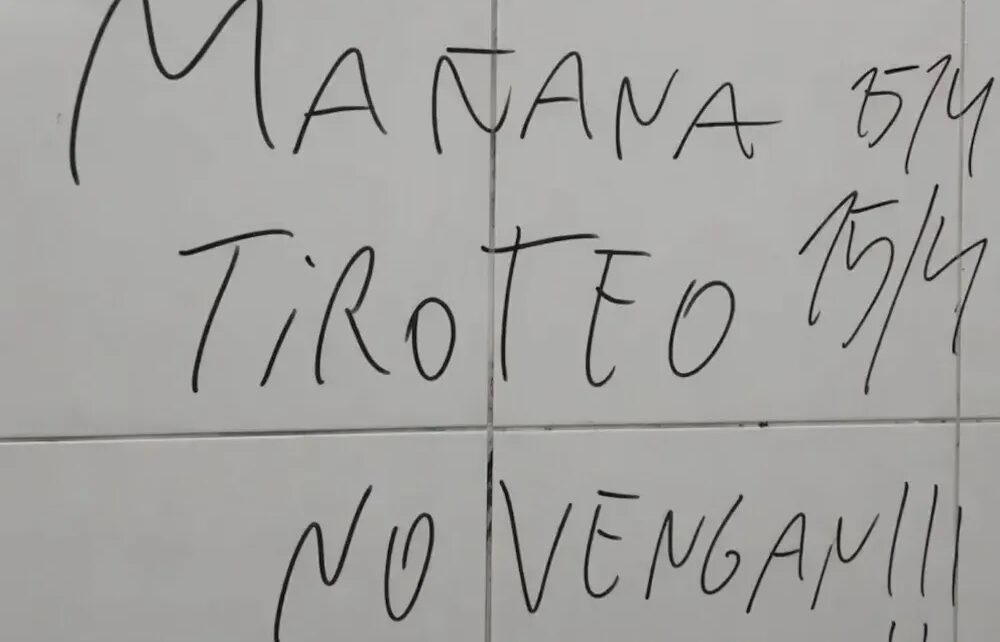 MAÑANA 15/4
TiROTEO 15/4
NO VENGAN!!!